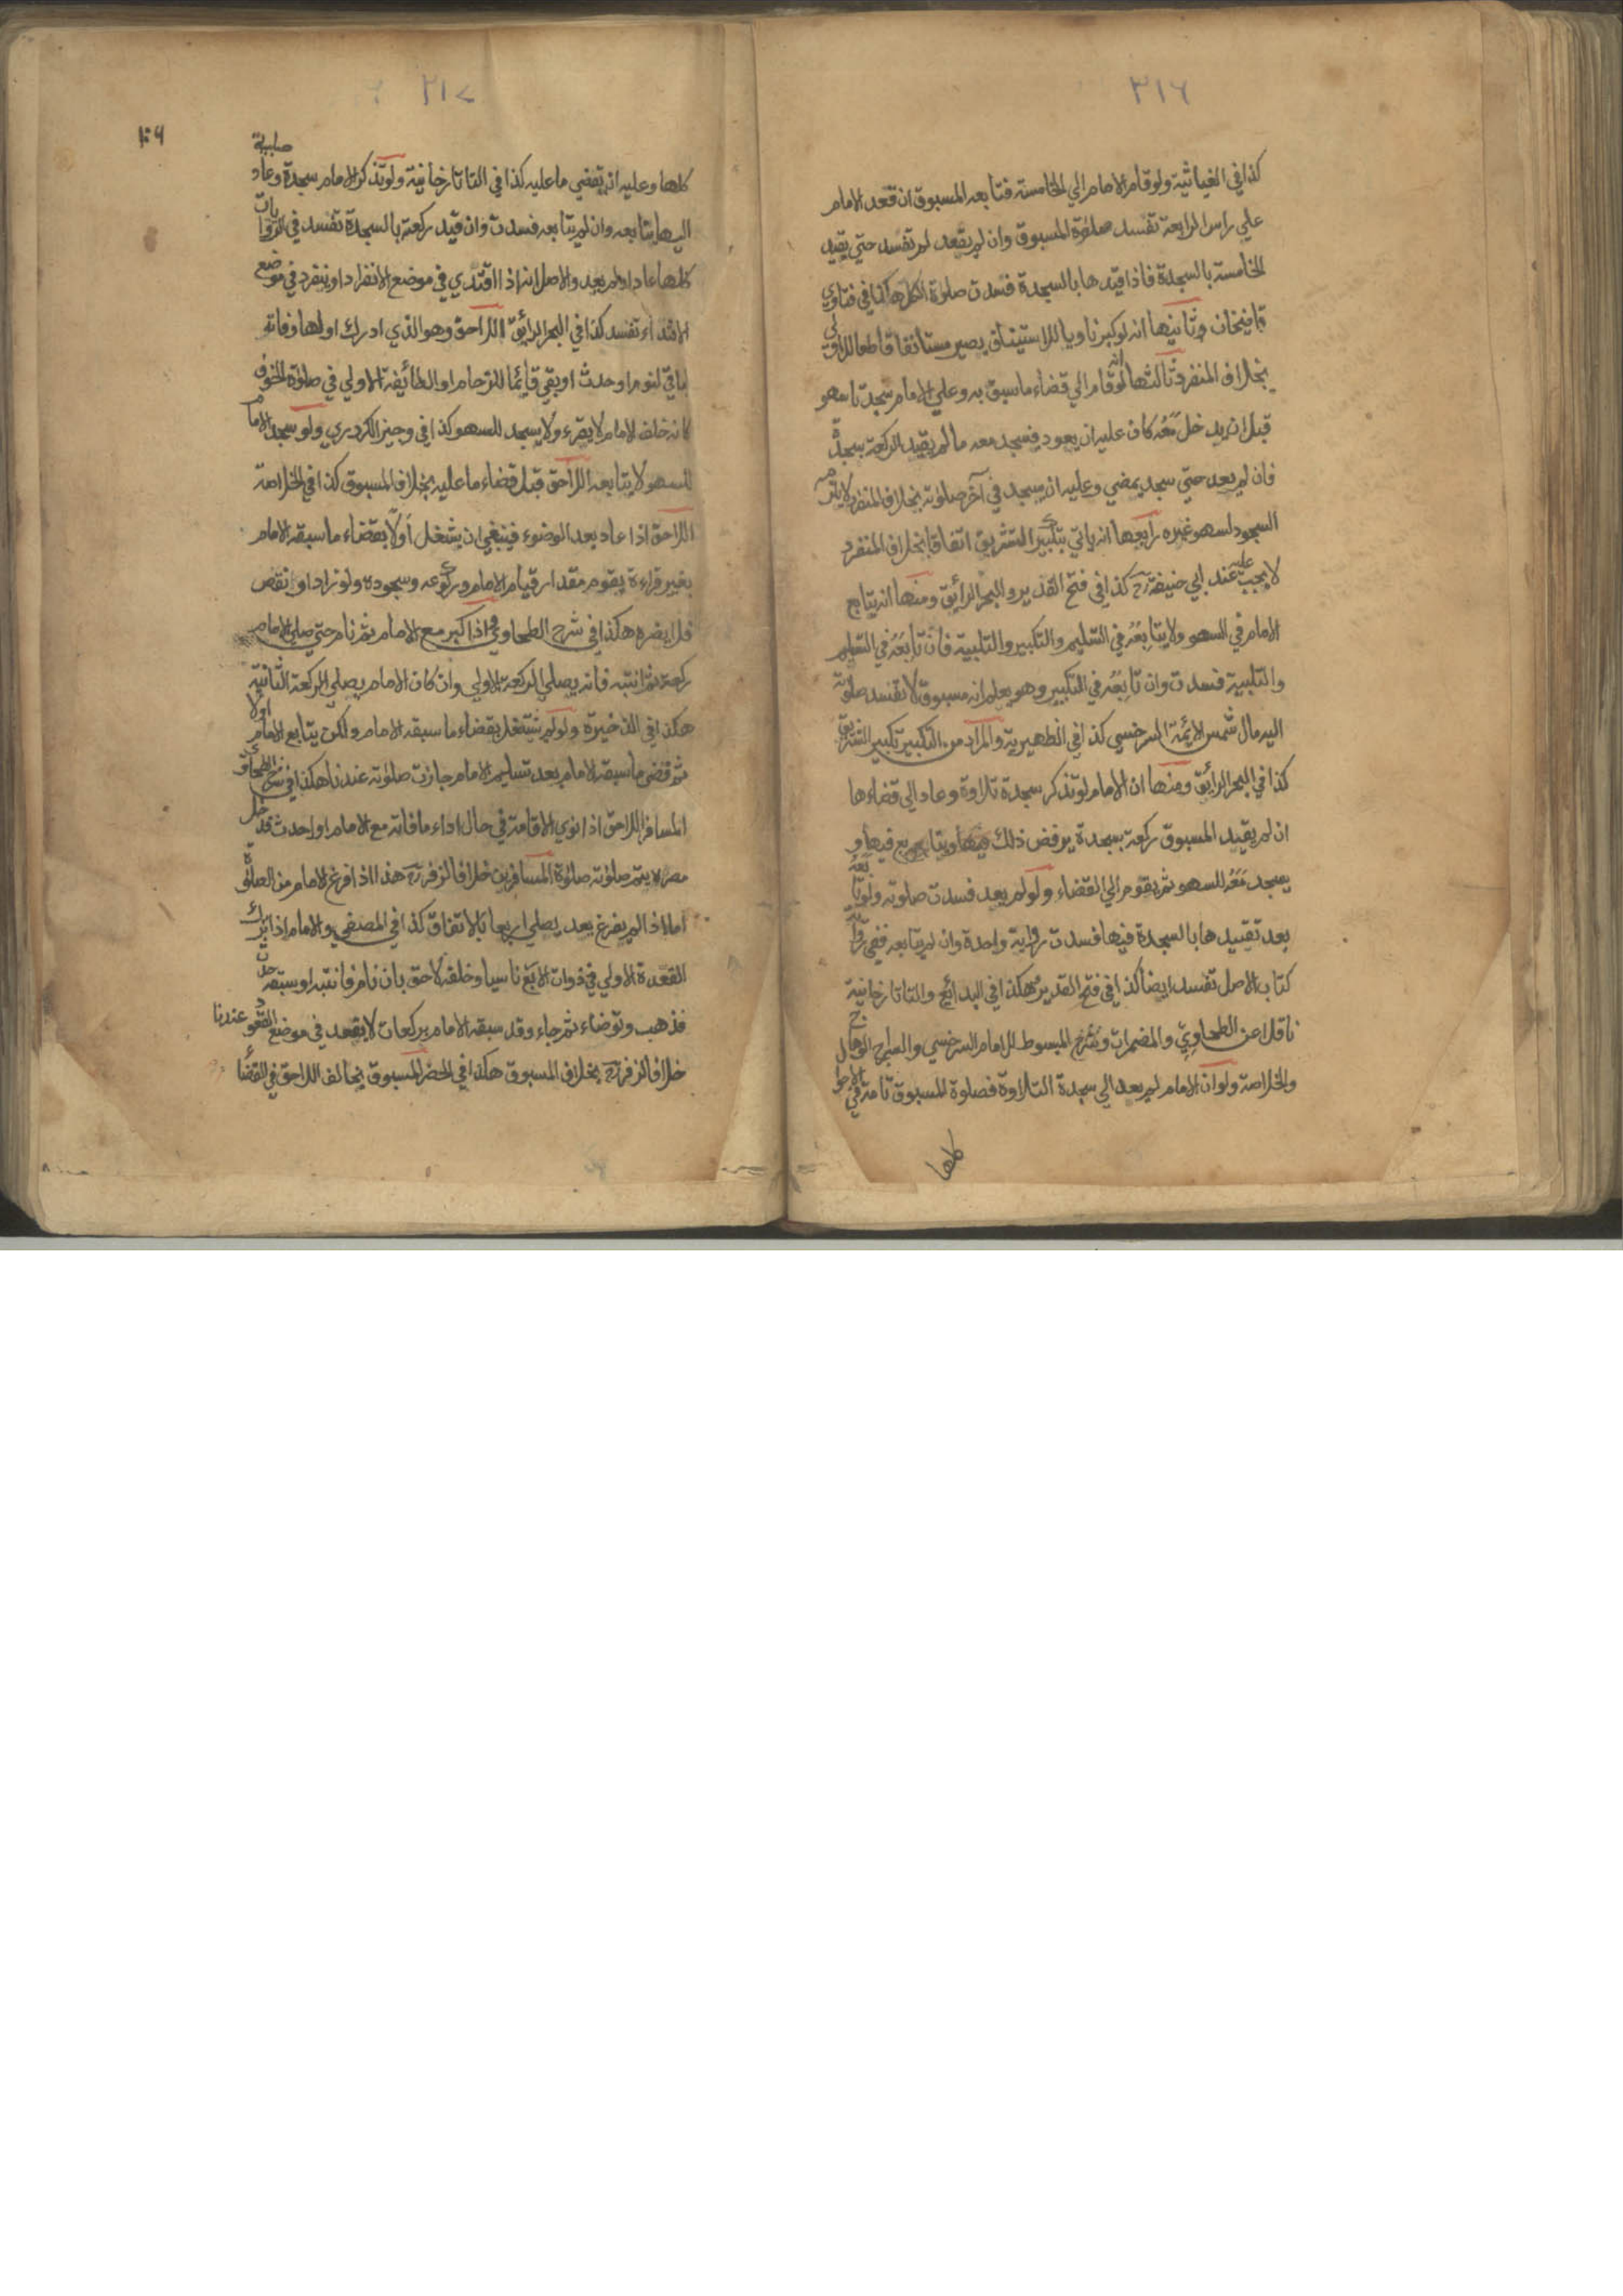 ٣١٦
كذا في الغياثية ولو قام الامام الي الخامسة فتابعه المسبوق ان قعد الامام
علي راس الرابعة تفسد صلوة المسبوق وان لم يقعد لم تفسد حتي يقيد
الخامسة بالسجدة فاذا قيدها بالسجدة فسدت صلوة الكل هكذا في فتاوي
قاضيخان وثانيها انه لو كبر ناويا للاستيناف يصير مستانفا قاطعا للاولي
بخلاف المنفرد ثالثها انه لو قام الي قضاء ما سبق به وعلي الامام سجدتا سهو
قبل ان يدخل معه كان عليه ان يعود فيسجد معه ما لم يقيد الركعة بسجدة
فان لم يعد حتي سجد يمضي وعليه ان يسجد في آخر صلوته بخلاف المنفرد لا يلزمه
السجود لسهو غيره رابعها انه ياتي بتكبير التشريق اتفاقا بخلاف المنفرد
لا يجب عليه عند ابي حنيفة رح كذا في فتح القدير والبحر الرائق ومنها انه يتابع
الامام في السهو ولا يتابعه في التسليم والتكبير والتلبية فان تابعه في التسليم
والتلبية فسدت وان تابعه في التكبير وهو يعلم انه مسبوق لا تفسد صلوته
اليه مال شمس الايمة السرخسي كذا في الظهيرية والمراد من التكبير تكبير التشريق
كذا في البحر الرائق ومنها ان الامام لو تذكر سجدة تلاوة وعاد الي قضاءها
ان لم يقيد المسبوق ركعة بسجدة يرفض ذلك ويتابع فيها و
يسجد معه للسهو ثم يقوم الي القضاء ولو لم يعد فسدت صلوته ولو تابعه
بعد تقييدها بالسجدة فيها فسدت رواية واحدة وان لم يتابعه ففي رواية
كتاب الاصل تفسد ايضا كذا في فتح القدير وهكذا في البدائع والتاتارخانية
ناقلا عن الطحاوي والمضمرات وشرح المبسوط للامام السرخسي والسراج الوهاج
والخلاصة ولو ان الامام لم يعد الي سجدة التلاوة فصلوة المسبوق تامة في الاحوال
كلها
٣١٧
١٠٩
كلها وعليه ان يقضي ما عليه كذا في التاتارخانية ولو تذكر الامام سجدة صلبية وعاد
اليها يتابعه وان لم يتابعه فسدت وان قيد ركعته بالسجدة تفسد في الروايات
كلها عاد او لم يعد والاصل انه اذا اقتدي في موضع الانفراد او ينفرد في موضع
الاقتداء تفسد كذا في البحر الرائق اللاحق وهو الذي ادرك اولها وفاته
الباقي لنوم او حدث او بقي قائما للزحام او الطائفة الاولي في صلوة الخوف
كانه خلف الامام لا يقرء ولا يسجد للسهو كذا في وجيز الكردري ولو سجد الامام
للسهو لا يتابعه اللاحق قبل قضاء ما عليه بخلاف المسبوق كذا في الخلاصة
اللاحق اذا عاد بعد الوضوء فينبغي ان يشتغل اولا بقضاء ما سبقه الامام
بغير قراءة يقوم مقدار قيام الامام وركوعه وسجوده ولو زاد او نقص
فلا يضره هكذا في شرح الطحاوي واذا كبر مع الامام ثم نام حتي صلي الامام
ركعة ثم انتبه فانه يصلي الركعة الاولي وان كان الامام يصلي الركعة الثانية
هكذا في الذخيرة ولو لم يشتغل بقضاء ما سبقه الامام ولكن يتابع الامام اولا
ثم قضي ما سبقه الامام بعد تسليم الامام جازت صلوته عندنا هكذا في شرح الطحاوي
المسافر اللاحق اذا نوي الاقامة في حال اداء ما فاته مع الامام او احدث فدخل
مصره لا يتم صلوته صلوة المسافرين خلافا لزفر رح هذا اذا فرغ الامام من الصلوة
اما اذا لم يفرغ بعد يصلي اربعا بالاتفاق كذا في المصفي والامام اذا ترك
القعدة الاولي في ذوات الاربع ناسيا وخلفه لاحق بان نام فانتبه او سبقه حدث
فذهب وتوضاء ثم جاء وقد سبقه الامام بركعات لا يقعد في موضع القعود عندنا
خلافا لزفر رح بخلاف المسبوق هكذا في الحصر المسبوق يخالف اللاحق في القضاء